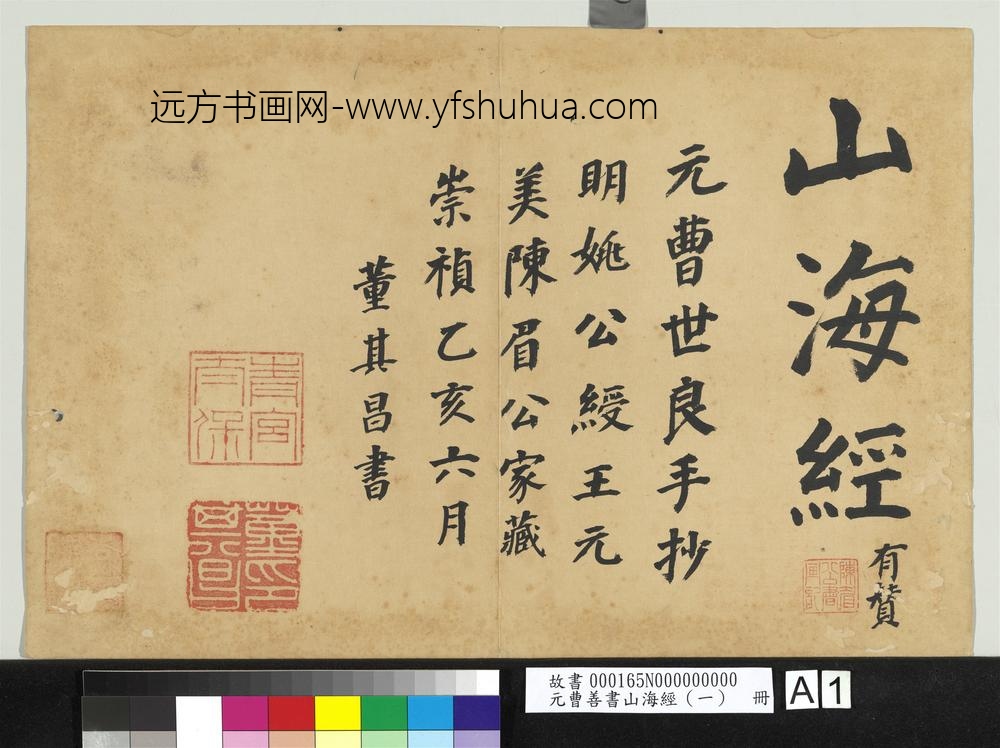 远方书画网-www.yfshuhua.com
山海經
有贊
元曹世良手抄
明姚公綬王元
美陳眉公家藏
崇禎乙亥六月
董其昌書
青宮太保
故書000165N000000000
元曹善書山海經（一） 冊
A1